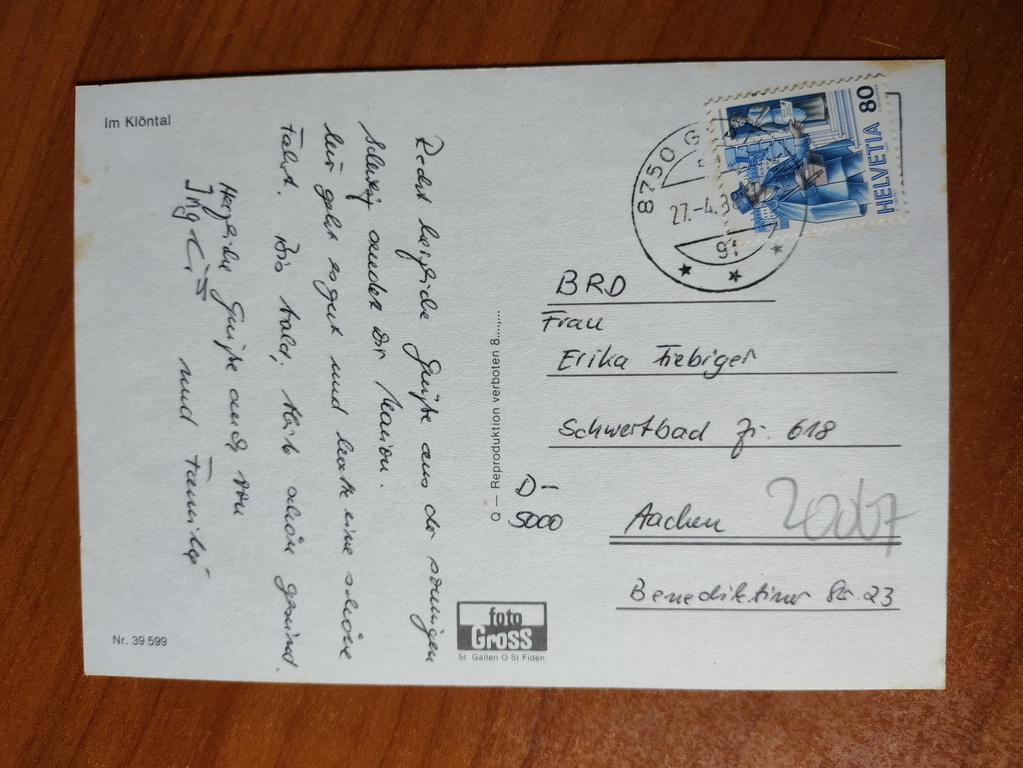 Im Klöntal
Recht herzliche Grüße aus der sonnigen
Schweiz sendet Dir Marion.
Mir geht es gut und hatte eine schöne
Fahrt. Bis bald, bleib schön gesund.
Herzliche Grüße auch von
und Familie
Nr. 39 599
Q — Reproduktion verboten 8.......
foto
Gross
St. Gallen O St Fiden
8750 G
27.-4.
HELVETIA 80
BRD
Frau
Erika Fiebiger
Schwertbad Zi. 618
D-
5000 Aachen
Benediktiner Str. 23